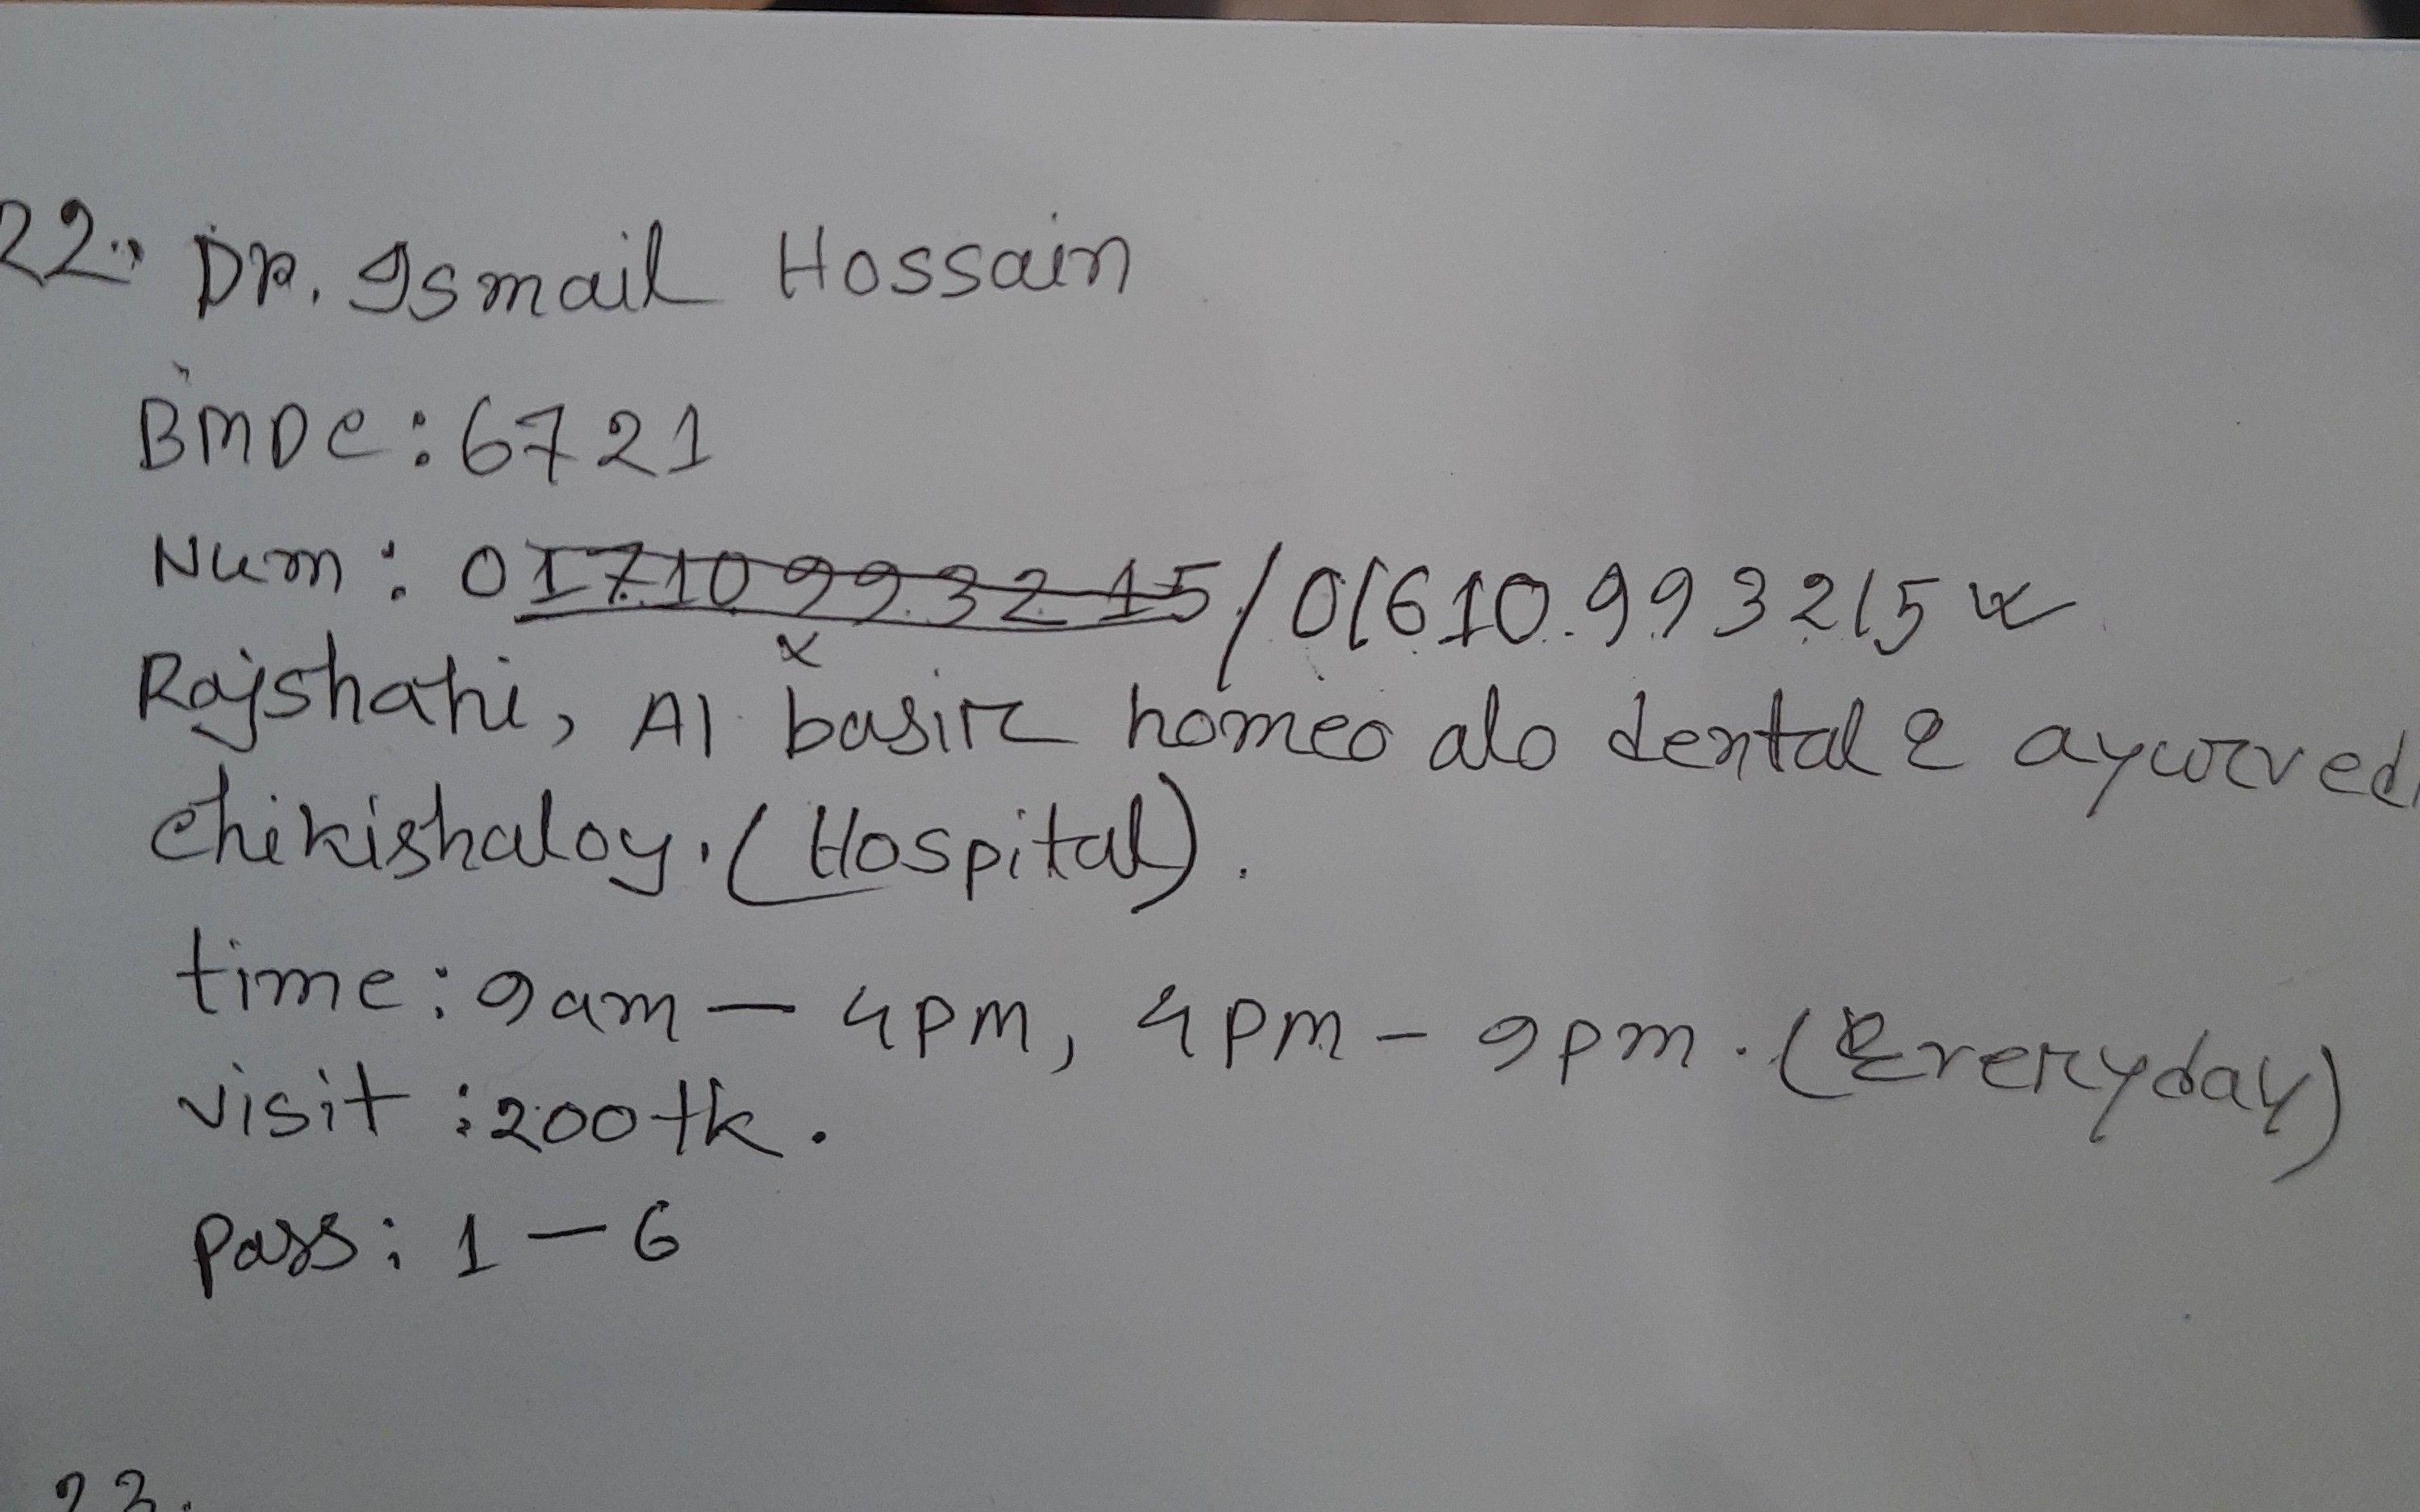 22. Dr. Ismail Hossain
BMDC: 6721
Num: 01710993215 / 01610993215
x
Rajshahi, Al basir homeo alo dental & ayurved
chikishaloy. (Hospital).
time: 9am - 4pm, 4pm - 9pm. (Everyday)
visit: 200tk.
pass: 1 - 6
23.